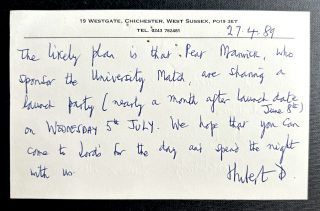 19 WESTGATE, CHICHESTER, WEST SUSSEX, PO19 3ET
TEL. 0243 782481
27.4.89
The likely plan is that Peat Marwick, who
sponsor the University Match, are sharing a
launch party (nearly a month after launch date
June 8th)
on WEDNESDAY 5th JULY. We hope that you can
come to Lord's for the day and spend the night
with us.
Hubert D.